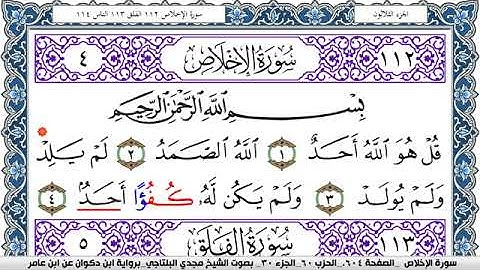 الجزء الثلاثون
سورة الإخلاص ١١٢ الفلق ١١٣ الناس ١١٤
١١٢ سُورَةُ الإِخْلَاصِ ٤
بِسْمِ اللَّهِ الرَّحْمَٰنِ الرَّحِيمِ
قُلْ هُوَ اللَّهُ أَحَدٌ ١ اللَّهُ الصَّمَدُ ٢ لَمْ يَلِدْ
وَلَمْ يُولَدْ ٣ وَلَمْ يَكُن لَّهُ كُفُؤًا أَحَدٌ ٤
١١٣ سُورَةُ الفَلَقِ ٥
سورة الإخلاص _ الصفحة ٦٠٤_ الحزب ٦٠_ الجزء ٣٠_ بصوت الشيخ مجدي البلتاجي_ برواية ابن ذكوان عن ابن عامر